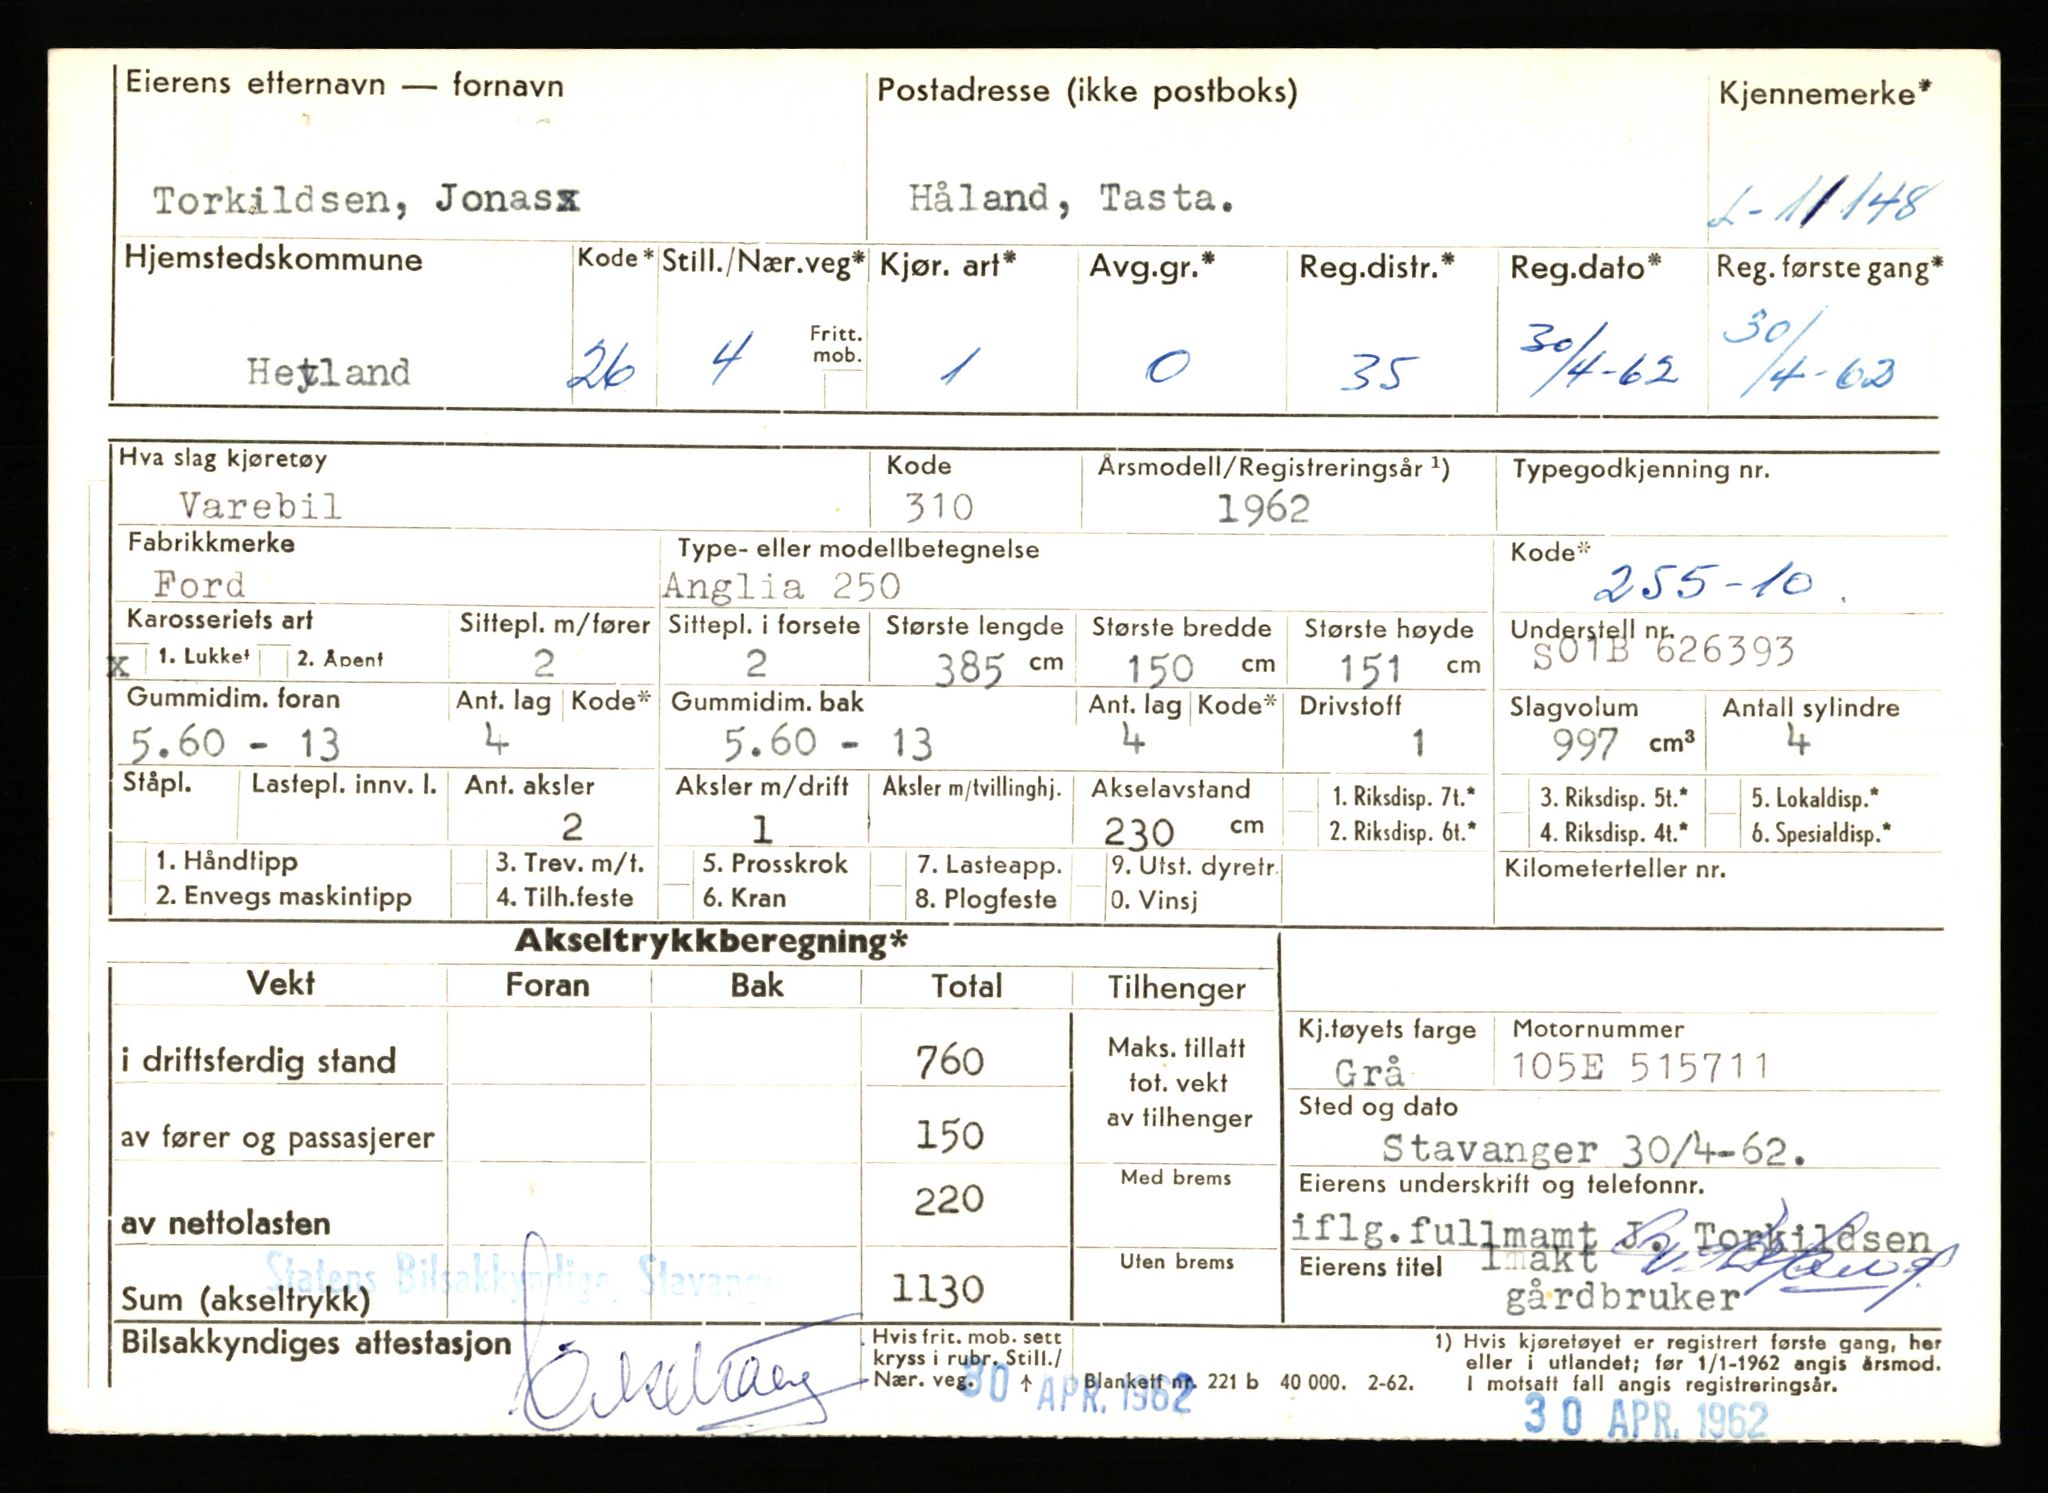 Eierens etternavn — fornavn Postadresse (ikke postboks) Kjennemerke*
Torkildsen, Jonasx Håland, Tasta. L-11148
Hjemstedskommune Kode* Still./Nær.veg* Kjør. art* Avg.gr.* Reg.distr.* Reg.dato* Reg. første gang*
Fritt.
mob.
Hetland 26 4 1 0 35 30/4-62 30/4-62
Hva slag kjøretøy Kode Årsmodell/Registreringsår ¹) Typegodkjenning nr.
Varebil 310 1962
Fabrikkmerke Type- eller modellbetegnelse Kode*
Ford Anglia 250 255-10.
Karosseriets art Sittepl. m/fører Sittepl. i forsete Største lengde Største bredde Største høyde Understell nr.
x 1. Lukket 2. Åpent 2 2 385 cm 150 cm 151 cm S01B 626393
Gummidim. foran Ant. lag Kode* Gummidim. bak Ant. lag Kode* Drivstoff Slagvolum Antall sylindre
5.60 - 13 4 5.60 - 13 4 1 997 cm³ 4
Ståpl. Lastepl. innv. l. Ant. aksler Aksler m/drift Aksler m/tvillinghj. Akselavstand 1. Riksdisp. 7t.* 3. Riksdisp. 5t.* 5. Lokaldisp.*
2 1 230 cm 2. Riksdisp. 6t.* 4. Riksdisp. 4t.* 6. Spesialdisp.*
1. Håndtipp 3. Trev. m/t. 5. Prosskrok 7. Lasteapp. 9. Utst. dyretr. Kilometerteller nr.
2. Envegs maskintipp 4. Tilh.feste 6. Kran 8. Plogfeste 0. Vinsj
Akseltrykkberegning*
Vekt Foran Bak Total Tilhenger
Kj.tøyets farge Motornummer
i driftsferdig stand 760 Maks. tillatt
tot. vekt
av tilhenger
Grå 105E 515711
Sted og dato
av fører og passasjerer 150 Stavanger 30/4-62.
Med brems Eierens underskrift og telefonnr.
av nettolasten 220 iflg.fullmamt J. Torkildsen
Statens Bilsakkyndige, Stavange
Uten brems Eierens titel lmakt
Sum (akseltrykk) 1130 gårdbruker
Bilsakkyndiges attestasjon
Hvis frit. mob. sett
kryss i rubr. Still./
Nær. veg. ↑ Blankett nr. 221 b 40 000. 2-62.
1) Hvis kjøretøyet er registrert første gang, her
eller i utlandet; før 1/1-1962 angis årsmod.
I motsatt fall angis registreringsår.
30 APR. 1962
30 APR. 1962